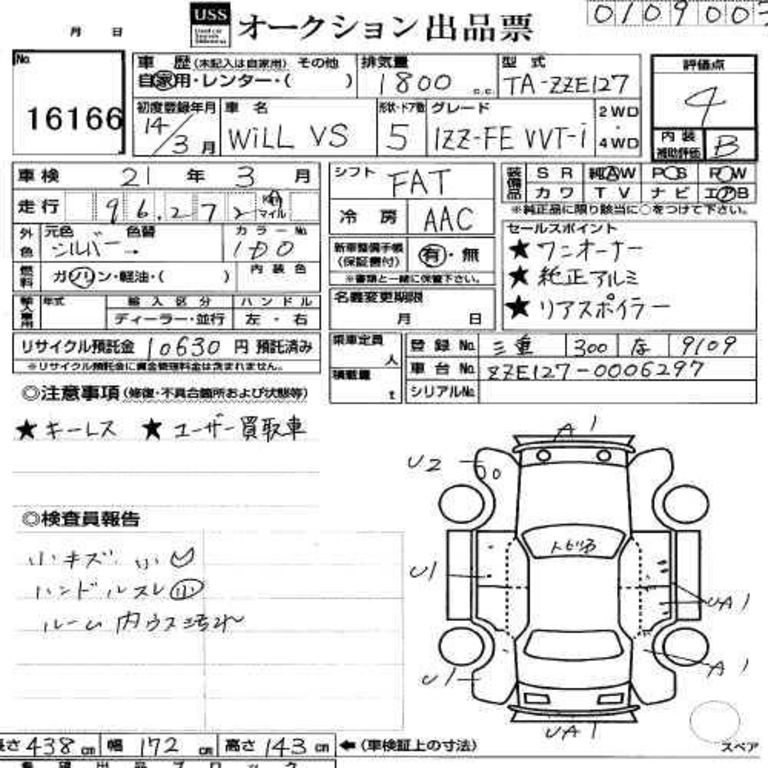 USS オークション 出品票
月 日
010900
No.
16166
車 歴 (未記入は自家用) その他
自家用・レンター・( )
排気量
1800 c.c.
型 式
TA-ZZE127
評価点
4
初度登録年月
14/3 月
車 名
WiLL VS
形状・ドア数
5
グレード
1ZZ-FE VVT-i
2WD
・
4WD
内 装
補助評価
B
車検 21 年 3 月
走行 96,272 Km マイル
外色
元色 色替
シルバー
カラーNo.
1D0
燃料
ガソリン・軽油・( )
内 装 色
輸入車用
年式
輸 入 区 分
ディーラー・並行
ハ ン ド ル
左 ・ 右
リサイクル預託金 10630 円 預託済み
※リサイクル預託金に資金管理料金は含まれません。
シフト
FAT
冷 房
AAC
新車整備手帳
(保証書付)
有・無
※書類と一緒に保管下さい。
名義変更期限
月 日
装備品
SR 純AW PS PW
カワ TV ナビ エアB
※純正品に限り該当に○をつけて下さい。
セールスポイント
★ ワンオーナー
★ 純正アルミ
★ リアスポイラー
乗車定員
人
積載量
t
登 録 No. 三重 300 な 9109
車 台 No. ZZE127-0006297
シリアルNo.
◎注意事項 (修復・不具合箇所および状態等)
★ キーレス ★ ユーザー買取車
◎検査員報告
小キズ 小
ハンドルスレ 小
ルーム内ウス汚れ
A1
U2
U1
UA1
A1
U1
UA1
スペア
長さ 438 cm 幅 172 cm 高さ 143 cm ←(車検証上の寸法)
希 望 出 品 ブ ロ ッ ク